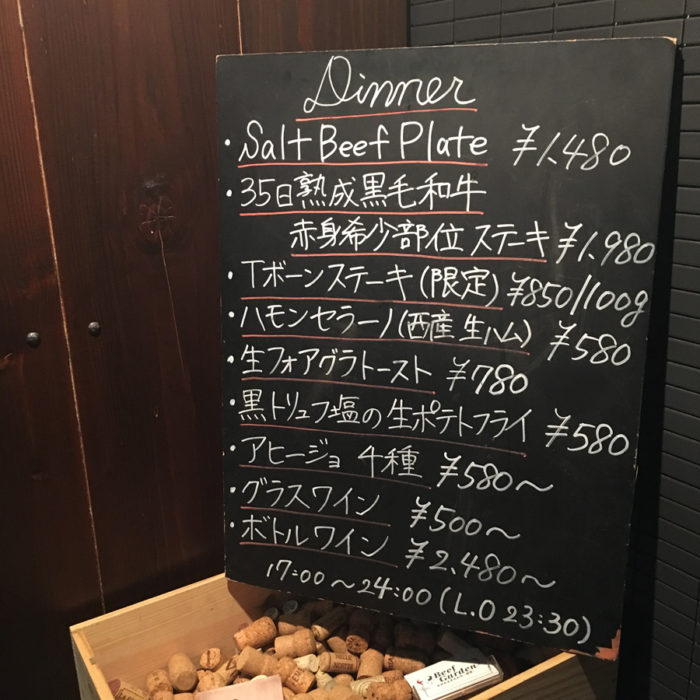 Dinner
・Salt Beef Plate ¥1,480
・35日熟成黒毛和牛
赤身希少部位 ステーキ ¥1,980
・Tボーンステーキ(限定) ¥850/100g
・ハモンセラーノ(西産 生ハム) ¥580
・生フォアグラトースト ¥780
・黒トリュフ塩の生ポテトフライ ¥580
・アヒージョ 4種 ¥580〜
・グラスワイン ¥500〜
・ボトルワイン ¥2,480〜
17:00〜24:00(L.O 23:30)
Beef
Garden